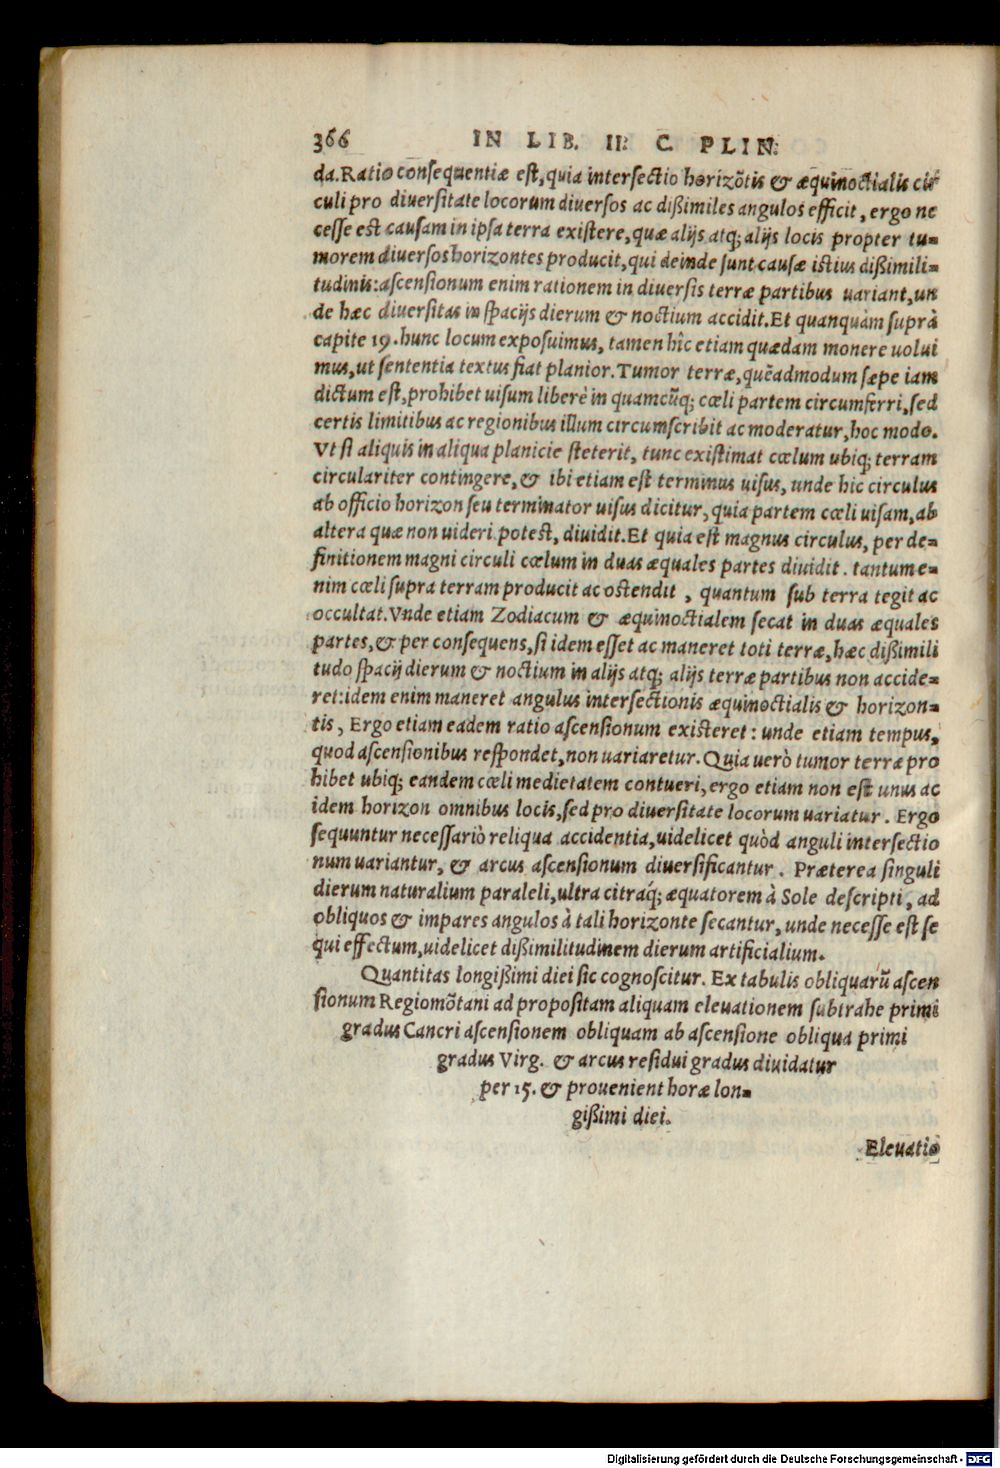 366 IN LIB. II. C. PLIN.
da. Ratio consequentiæ est, quia intersectio horizõtis & æquinoctialis cir
culi pro diuersitate locorum diuersos ac dißimiles angulos efficit, ergo ne
cesse est causam in ipsa terra existere, quæ alijs atq; alijs locis propter tu-
morem diuersos horizontes producit, qui deinde sunt causæ istius dißimili-
tudinis: ascensionum enim rationem in diuersis terræ partibus uariant, un
de hæc diuersitas in spacijs dierum & noctium accidit. Et quanquàm suprà
capite 19. hunc locum exposuimus, tamen hîc etiam quædam monere uolui
mus, ut sententia textus fiat planior. Tumor terræ, quẽadmodum sæpe iam
dictum est, prohibet uisum liberè in quamcũq; cœli partem circumferri, sed
certis limitibus ac regionibus illum circumscribit ac moderatur, hoc modo.
Vt si aliquis in aliqua planicie steterit, tunc existimat cœlum ubiq; terram
circulariter contingere, & ibi etiam est terminus uisus, unde hic circulus
ab officio horizon seu terminator uisus dicitur, quia partem cœli uisam, ab
altera quæ non uideri potest, diuidit. Et quia est magnus circulus, per de-
finitionem magni circuli cœlum in duas æquales partes diuidit. tantum e-
nim cœli supra terram producit ac ostendit, quantum sub terra tegit ac
occultat. Vnde etiam Zodiacum & æquinoctialem secat in duas æquales
partes, & per consequens, si idem esset ac maneret toti terræ, hæc dißimili
tudo spacij dierum & noctium in alijs atq; alijs terræ partibus non accide-
ret: idem enim maneret angulus intersectionis æquinoctialis & horizon-
tis, Ergo etiam eadem ratio ascensionum existeret: unde etiam tempus,
quod ascensionibus respondet, non uariaretur. Quia uerò tumor terræ pro
hibet ubiq; eandem cœli medietatem contueri, ergo etiam non est unus ac
idem horizon omnibus locis, sed pro diuersitate locorum uariatur. Ergo
sequuntur necessariò reliqua accidentia, uidelicet quòd anguli intersectio
num uariantur, & arcus ascensionum diuersificantur. Præterea singuli
dierum naturalium paraleli, ultra citraq́; æquatorem à Sole descripti, ad
obliquos & impares angulos à tali horizonte secantur, unde necesse est se
qui effectum, uidelicet dißimilitudinem dierum artificialium.
Quantitas longißimi diei sic cognoscitur. Ex tabulis obliquarũ ascen
sionum Regiomõtani ad propositam aliquam eleuationem subtrahe primi
gradus Cancri ascensionem obliquam ab ascensione obliqua primi
gradus Virg. & arcus residui gradus diuidatur
per 15. & prouenient horæ lon-
gißimi diei.
Eleuatio
Digitalisierung gefördert durch die Deutsche Forschungsgemeinschaft - DFG